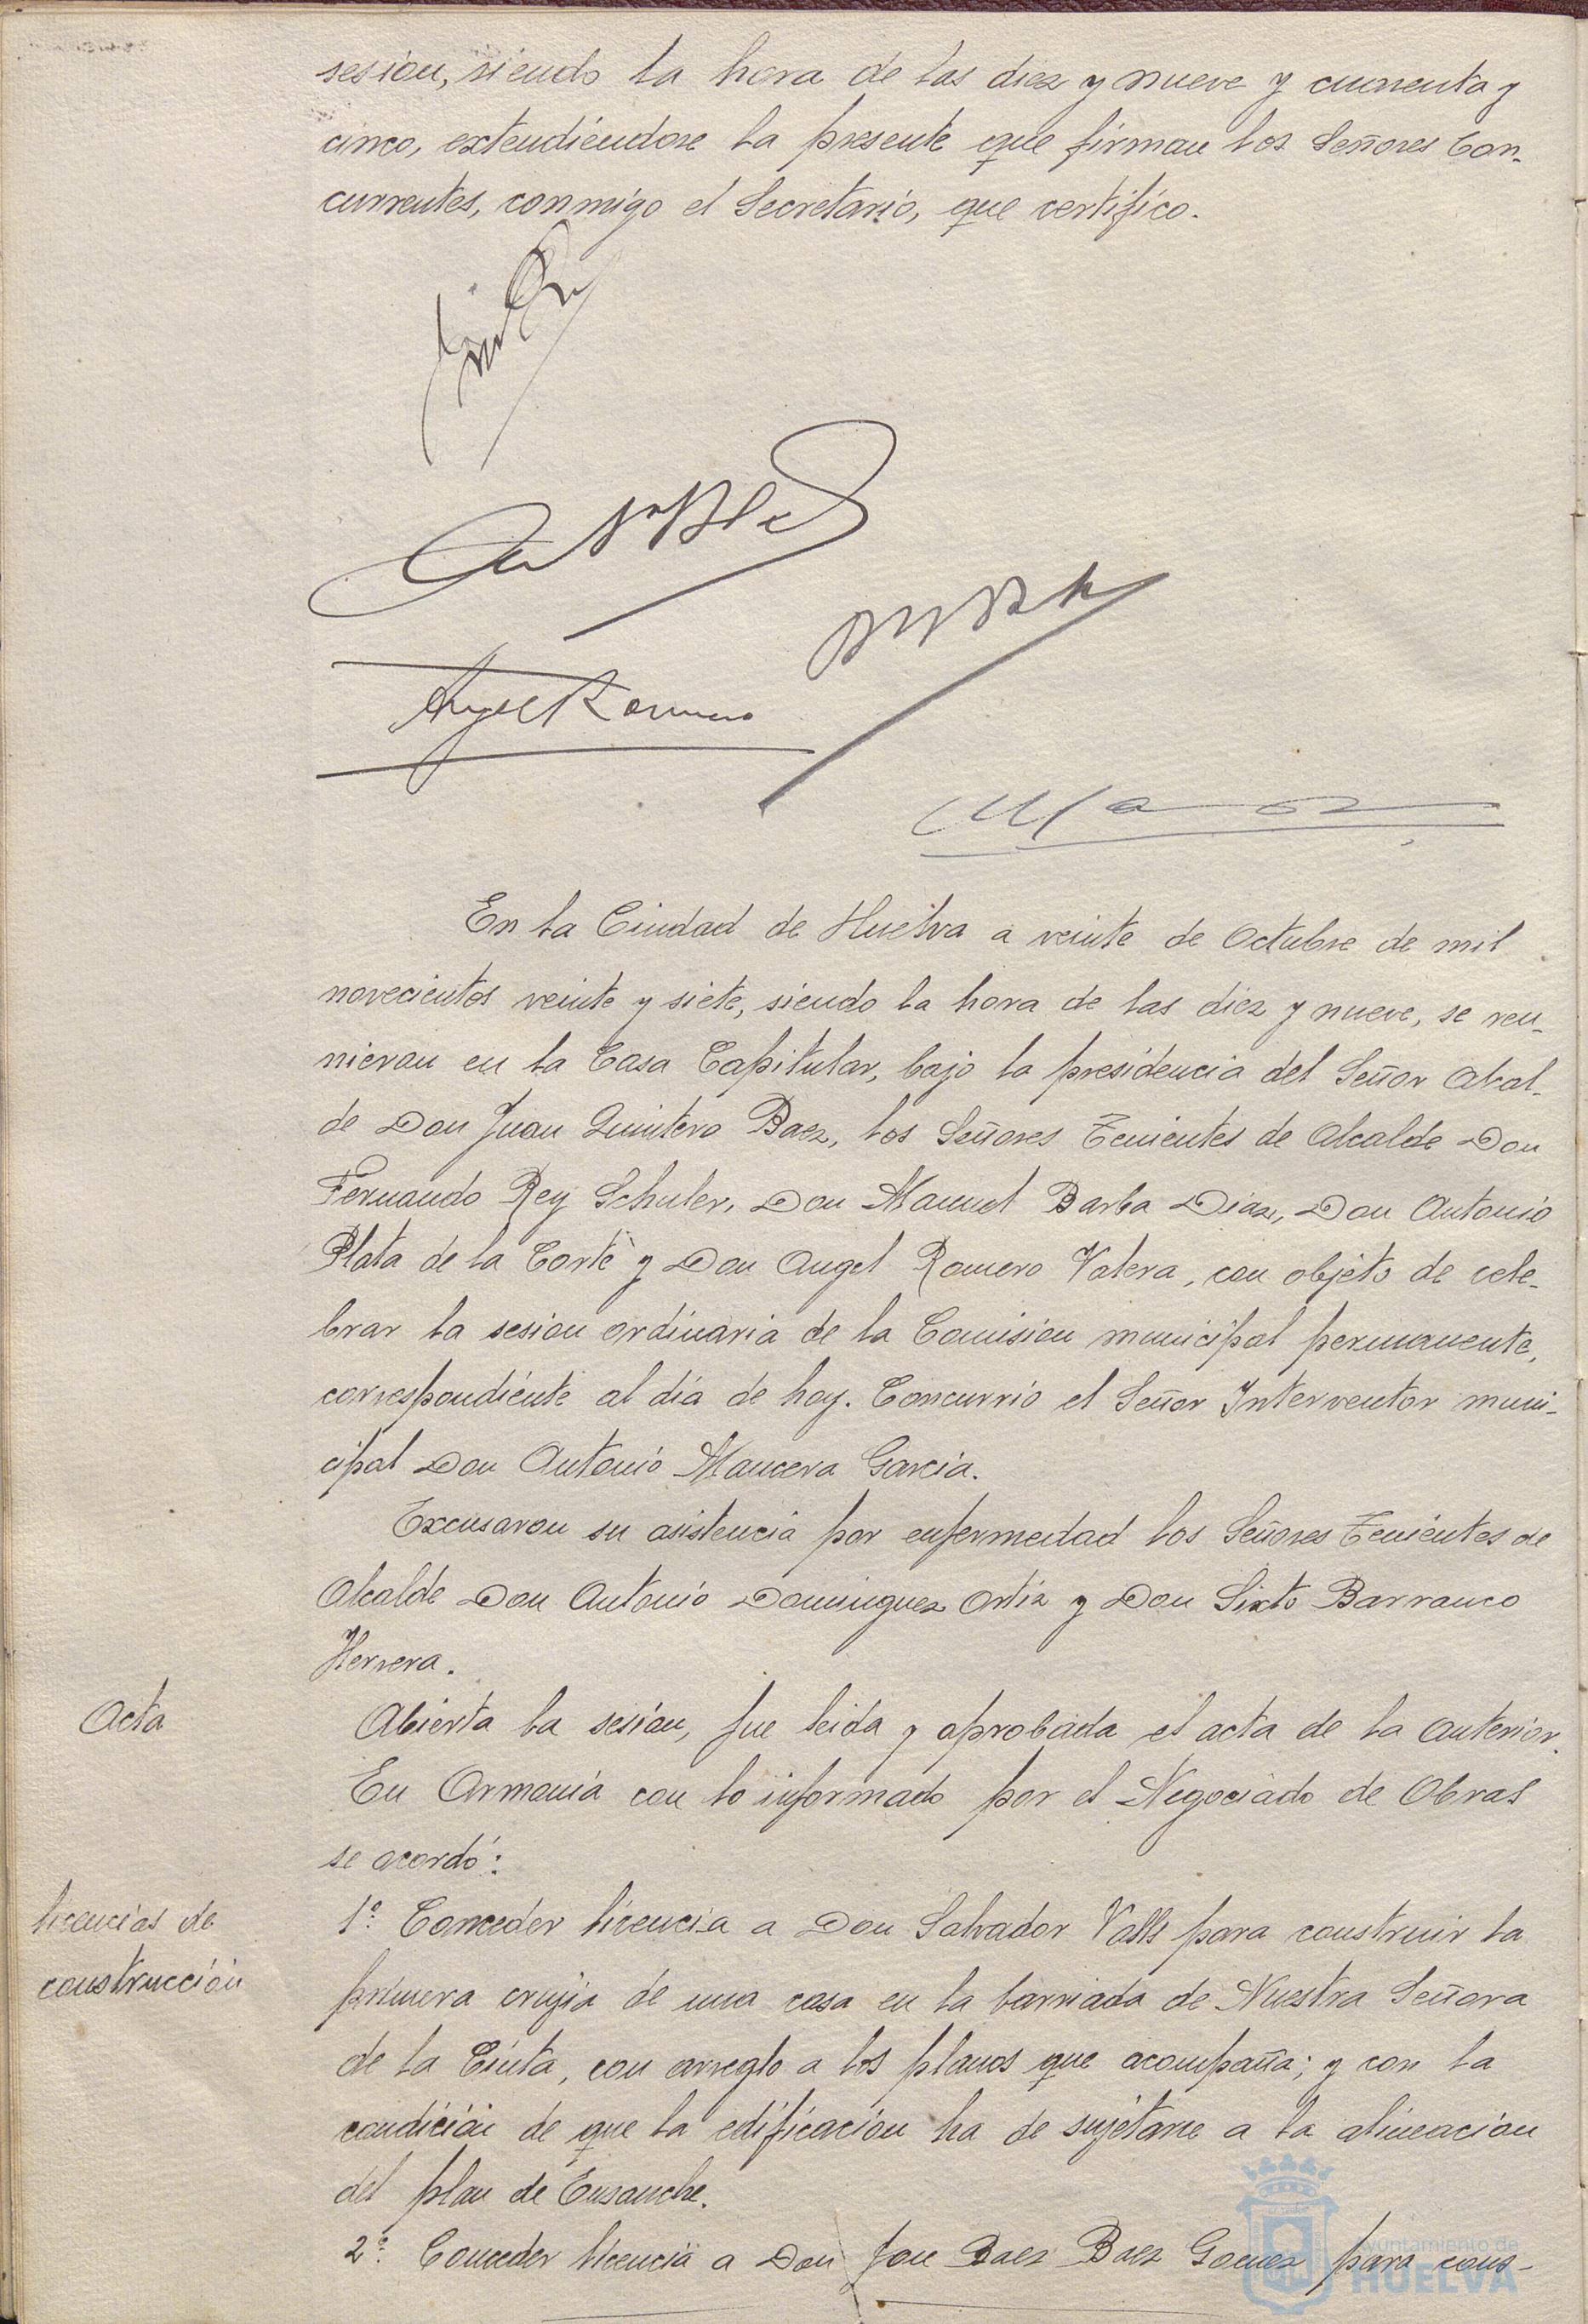 sesion, siendo la hora de las diez y nueve y cuarenta y
cinco, extendiéndose la presente que firman los Señores Con-
currentes, conmigo el Secretario, que certifico.
Angel Romero
En la Ciudad de Huelva a veinte de Octubre de mil
novecientos veinte y siete, siendo la hora de las diez y nueve, se reu-
nieron en la Casa Capitular, bajo la presidencia del Señor Alcal-
de Don Juan Quintero Baez, los Señores Tenientes de Alcalde Don
Fernando Rey Schuler, Don Manuel Barba Diaz, Don Antonio
Plata de la Corte y Don Angel Romero Valera, con objeto de cele-
brar la sesion ordinaria de la Comision municipal permanente,
correspondiente al dia de hoy. Concurrio el Señor Interventor muni-
cipal Don Antonio Mancera Garcia.
Excusaron su asistencia por enfermedad los Señores Tenientes de
Alcalde Don Antonio Dominguez Ortiz y Don Sixto Barranco
Herrera.
Acta
Abierta la sesion, fue leida y aprobada el acta de la anterior.
En Armonia con lo informado por el Negociado de Obras
se acordó:
licencias de
construcción
1º. Conceder licencia a Don Salvador Valls para construir la
primera crujia de una casa en la barriada de Nuestra Señora
de la Cinta, con arreglo a los planos que acompaña; y con la
condición de que la edificacion ha de sujetarse a la alineacion
del plan de Ensanche.
2º. Conceder licencia a Don Jose Baez Baez Gomez para cons-
Ayuntamiento de
HUELVA